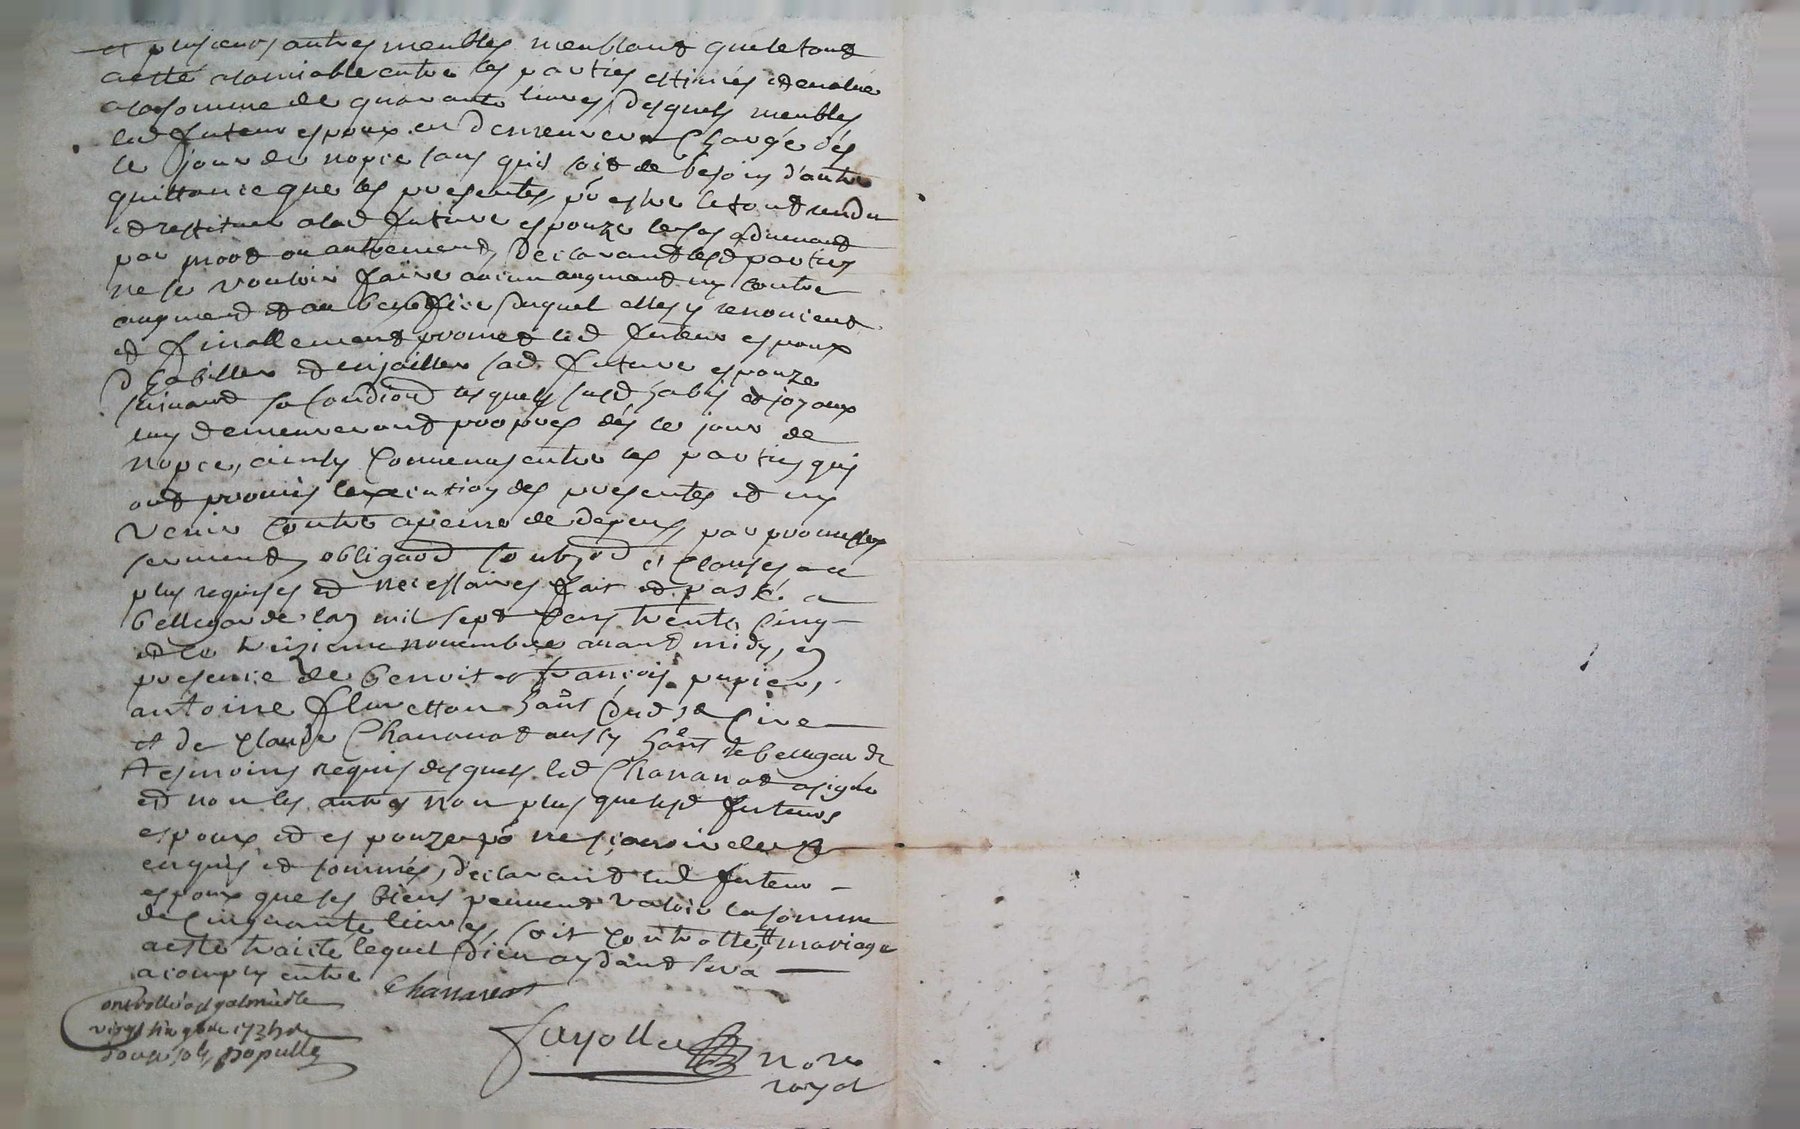 et plusieurs autres meubles meublant que le tout
a esté a lamiable entre les parties estimés et evalué
a la somme de quarante livres, desquels meubles
led futeur espoux en demeurera chargé dés
le jour de nopce sans quil soit de besoin d'autre
quittance que les presentes, pr estre le tout rendu
et restitué a lad future espouze le cas advenant
par mort ou autrement, declarant lesd parties
ne se vouloir faire aucun augment ny contre
augment et au benefice duquel elles y renoncent
et finallement promet led futeur espoux
d'habiller et enjoailler sad future espouze
suivant sa condion lesquels susd habis et joyaux
luy demeureront propres dés le jour de
nopce, ainsy convenus entre les parties quy
ont promis lexecution des presentes et ny
venir contre a peine de depens, par promesses
serment, obligaon soubzon et clauses a ce
plus requises et necessaires fait et passé a
bellegarde lan mil sept cens trente cinq
et le treizieme novembre avant midy, en
presence de benoit et francois pupier,
antoine fluretton hants dud st Cire
et de claude Chananat aussy hant de bellegarde
tesmoins requis desquels led Chananat a signé
et non les autres non plus que lesd futeurs
espoux et espouze pr ne scavoir de ce
enquis et sommés, declarant led futeur
espoux que ses biens peuvent valoir la somme
de cinquante livres, soit controllé, # mariage
a esté traicté lequel Dieu aydant sera
acomply entre
Chananat
Controllé a st galmier le
vingt cinq 9bre 1735 Rcu
douze sols populle
fayolle nore
royal